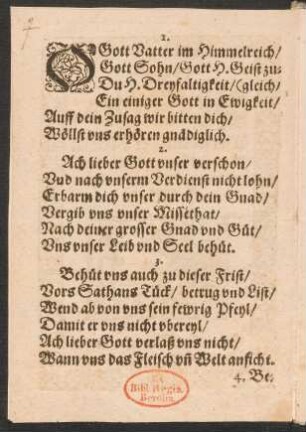 1.
O Gott Vatter im Himmelreich/
Gott Sohn/ Gott H. Geist zu-
Du H. Dreyfaltigkeit/ (gleich/
Ein einiger Gott in Ewigkeit/
Auff dein Zusag wir bitten dich/
Wöllst vns erhören gnädiglich.
2.
Ach lieber Gott vnser verschon/
Vnd nach vnserm Verdienst nicht lohn/
Erbarm dich vnser durch dein Gnad/
Vergib vns vnser Missethat/
Nach deiner grosser Gnad vnd Güt/
Vns vnser Leib vnd Seel behüt.
3.
Behüt vns auch zu dieser Frist/
Vors Sathans Tück/ betrug vnd List/
Wend ab von vns sein fewrig Pfeyl/
Damit er vns nicht vbereyl/
Ach lieber Gott verlaß vns nicht/
Wann vns das Fleisch vñ Welt anficht.
4. Be-
Ex
Bibl. Regia.
Berolin.